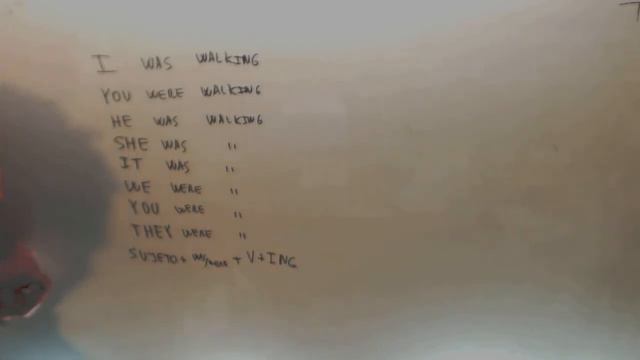 I WAS WALKING
YOU WERE WALKING
HE WAS WALKING
SHE WAS "
IT WAS "
WE WERE "
YOU WERE "
THEY WERE "
SUJETO + WAS/WERE + V + ING